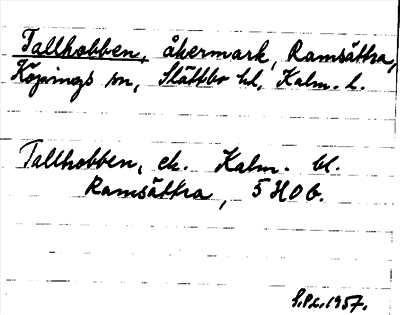 Tallhobben, åkermark, Ramsättra,
Köpings sn, Slättbo hd, Kalm. l.
Tallhobben, ek. Kalm. bl.
Ramsättra, 5 H 0 b.
1957.